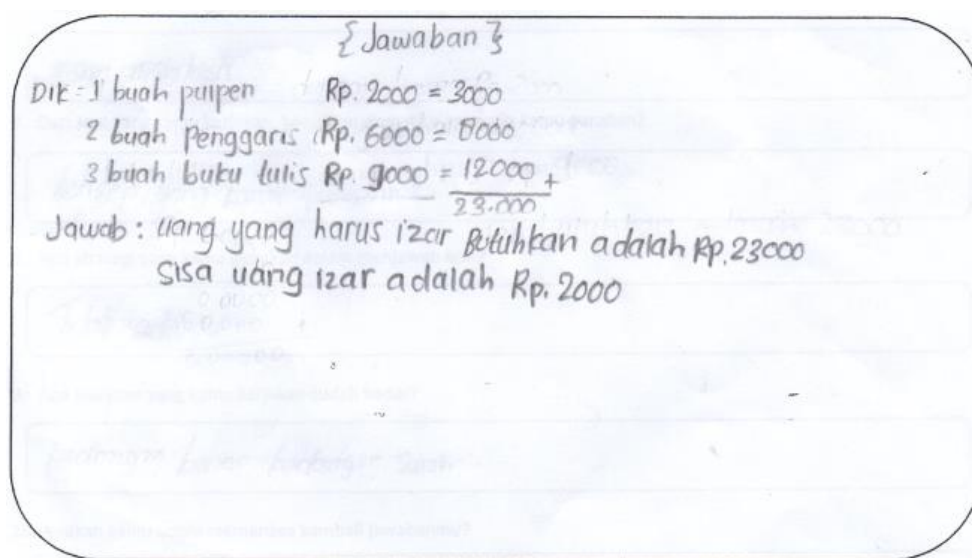 { Jawaban }
DIK - 1 buah pulpen Rp. 2000 = 3000
2 buah penggaris Rp. 6000 = 8000
3 buah buku tulis Rp. 9000 = 12000 +
23.000
Jawab : uang yang harus izar Butuhkan adalah Rp.23000
Sisa uang izar adalah Rp. 2000